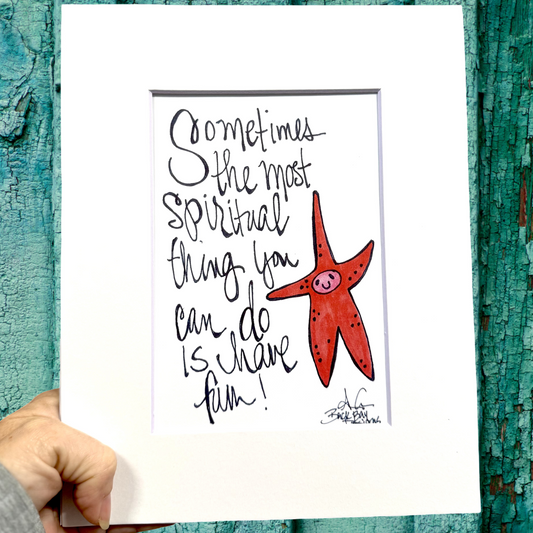 Sometimes
the most
spiritual
thing you
can do
is have
fun!
Back Bay